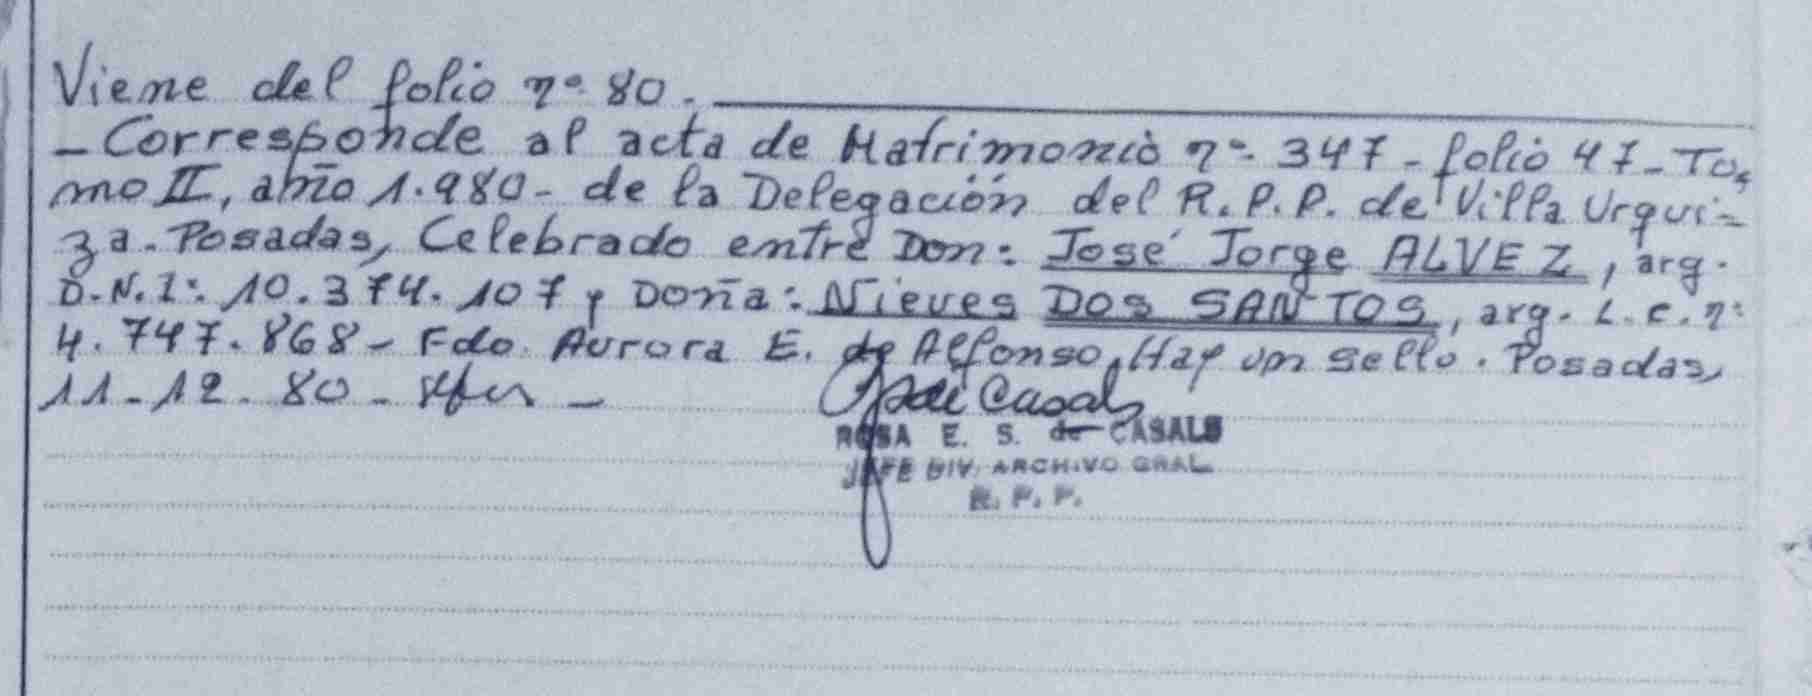 Viene del folio nº 80.
- Corresponde al acta de Matrimonio nº 347 - folio 47 - To,
mo II, año 1.980 - de la Delegación del R.P.P. de Villa Urqui-
za. Posadas, Celebrado entre Don: José Jorge ALVEZ, arg.
D.N.I: 10.374.107 y Doña: Nieves DOS SANTOS, arg. L.C. nº
4.747.868 - Fdo. Aurora E. de Alfonso, Hay un sello. Posadas,
11-12-80 -
ROSA E. S. de CASALS
JEFE DIV. ARCHIVO GRAL.
R. P. P.